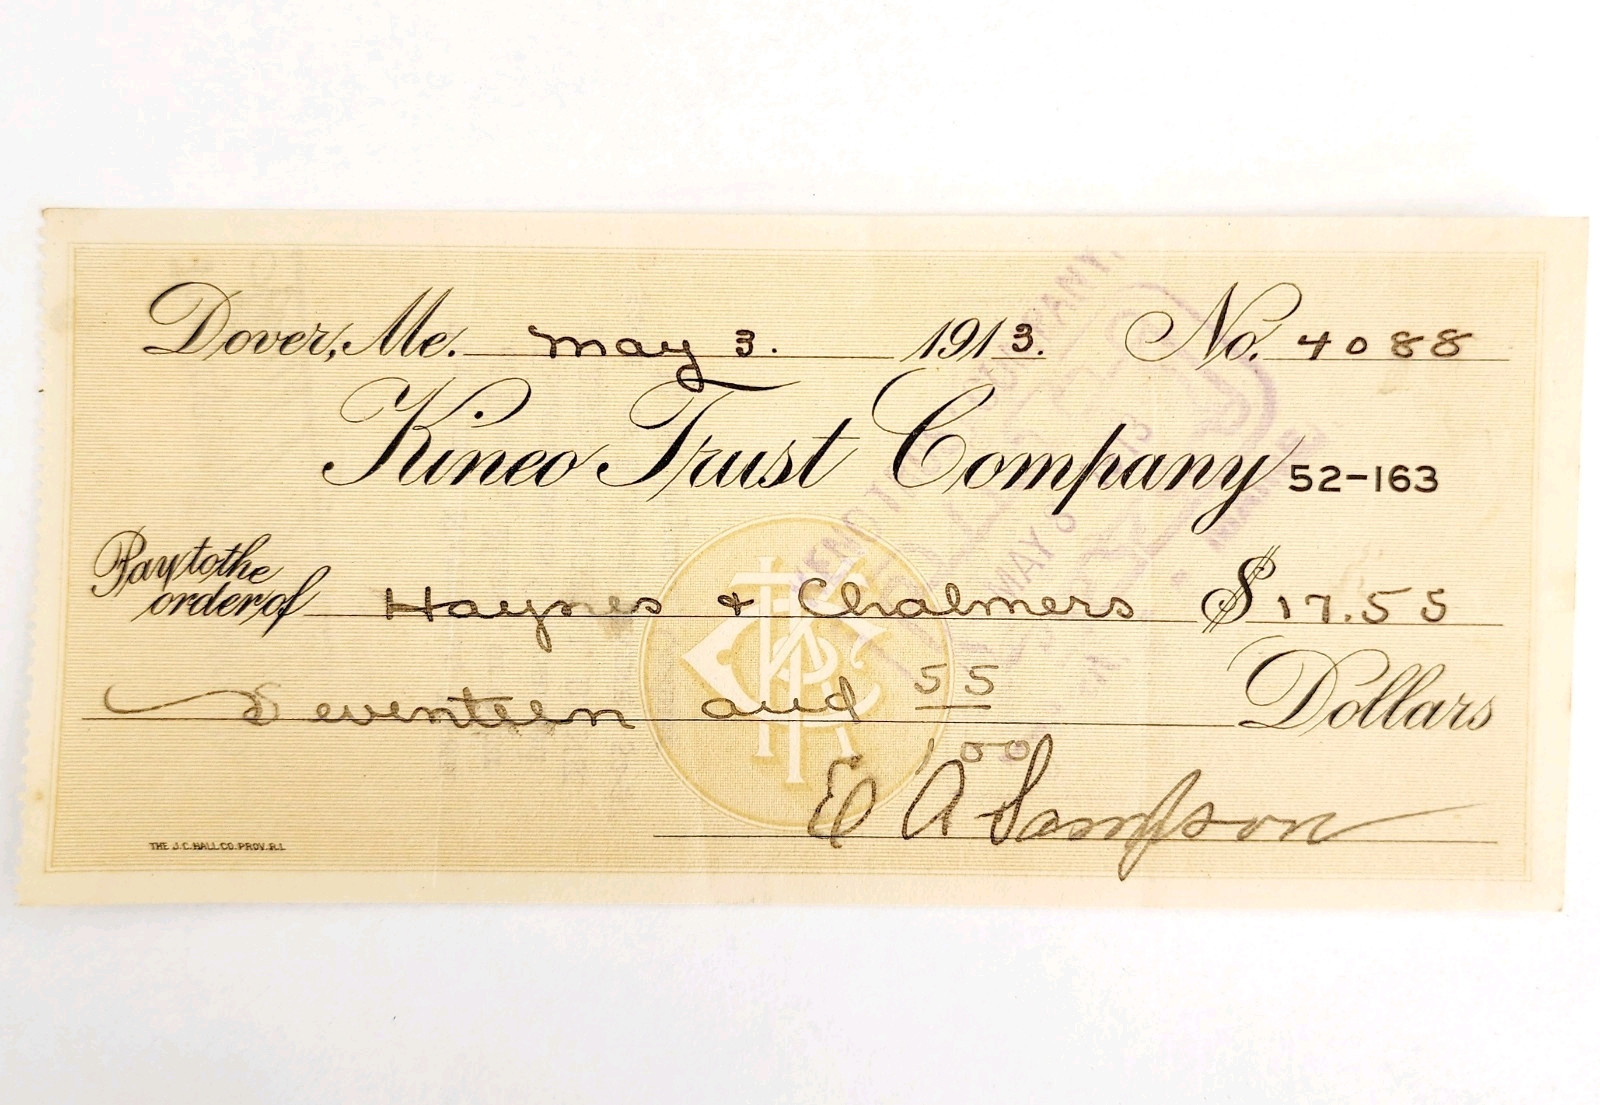 Dover, Me. May 3. 1913. No. 4088
Kineo Trust Company 52-163
Pay to the
order of Haynes & Chalmers $ 17.55
Seventeen and 55/100 Dollars
E A Sampson
THE J.C. HALL CO. PROV. R.I.
KTC
COMPANY,
MAY 6 13